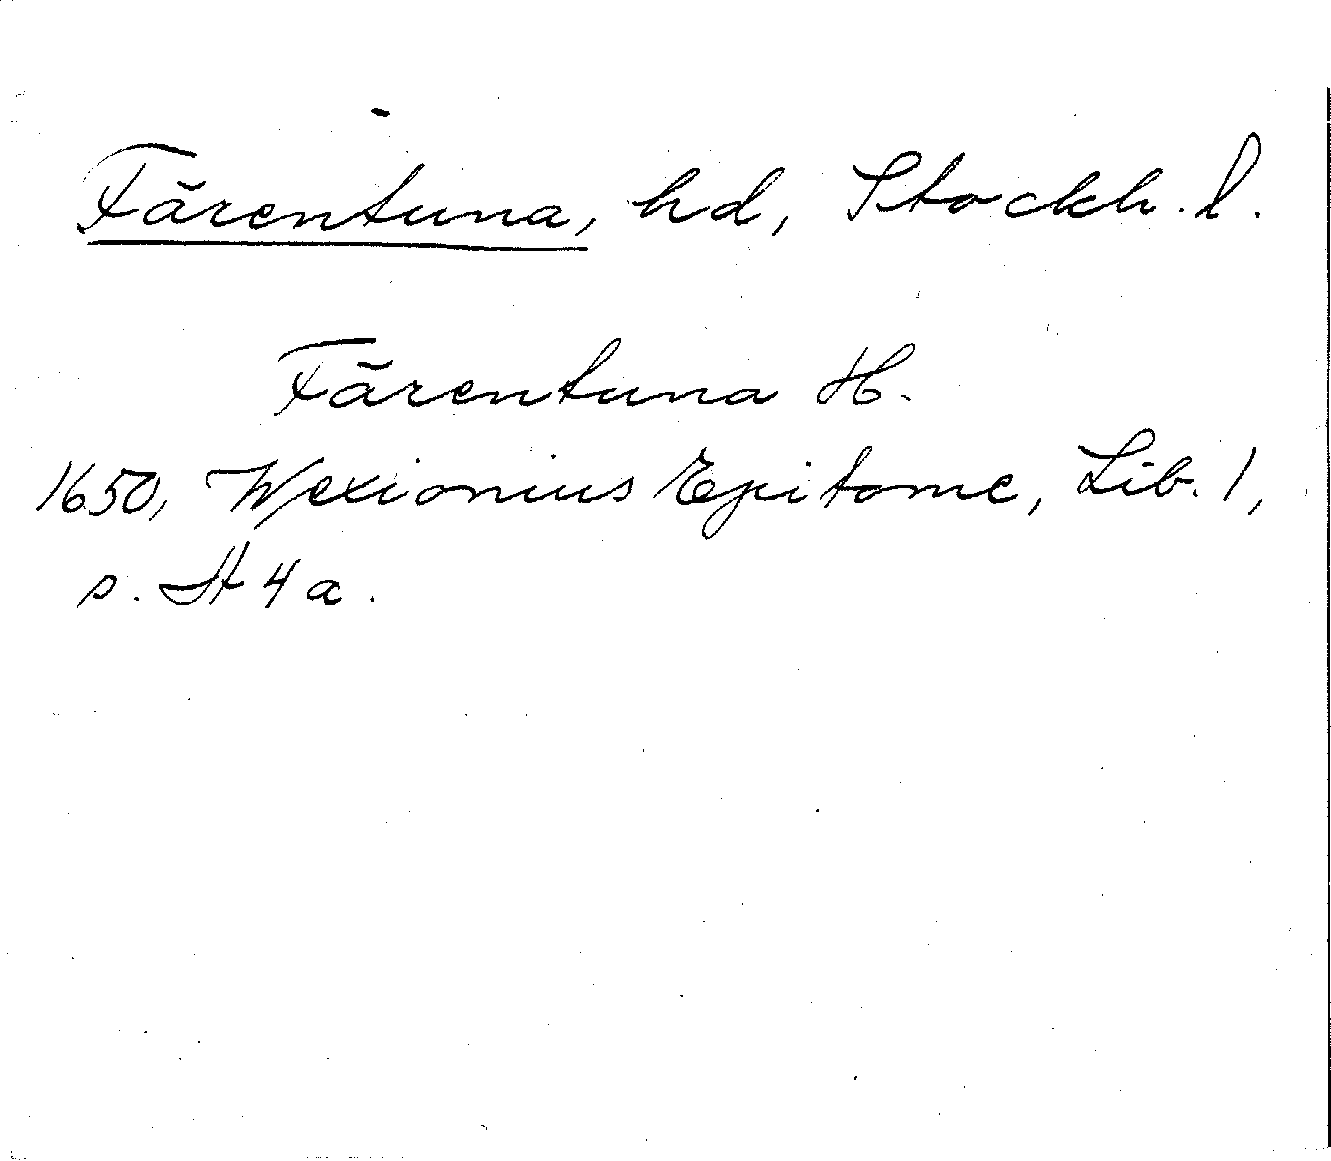 Färentuna, hd, Stockh. l.
Färentuna H.
1650, Wexionius Epitome, Lib. 1,
s. A 4 a.